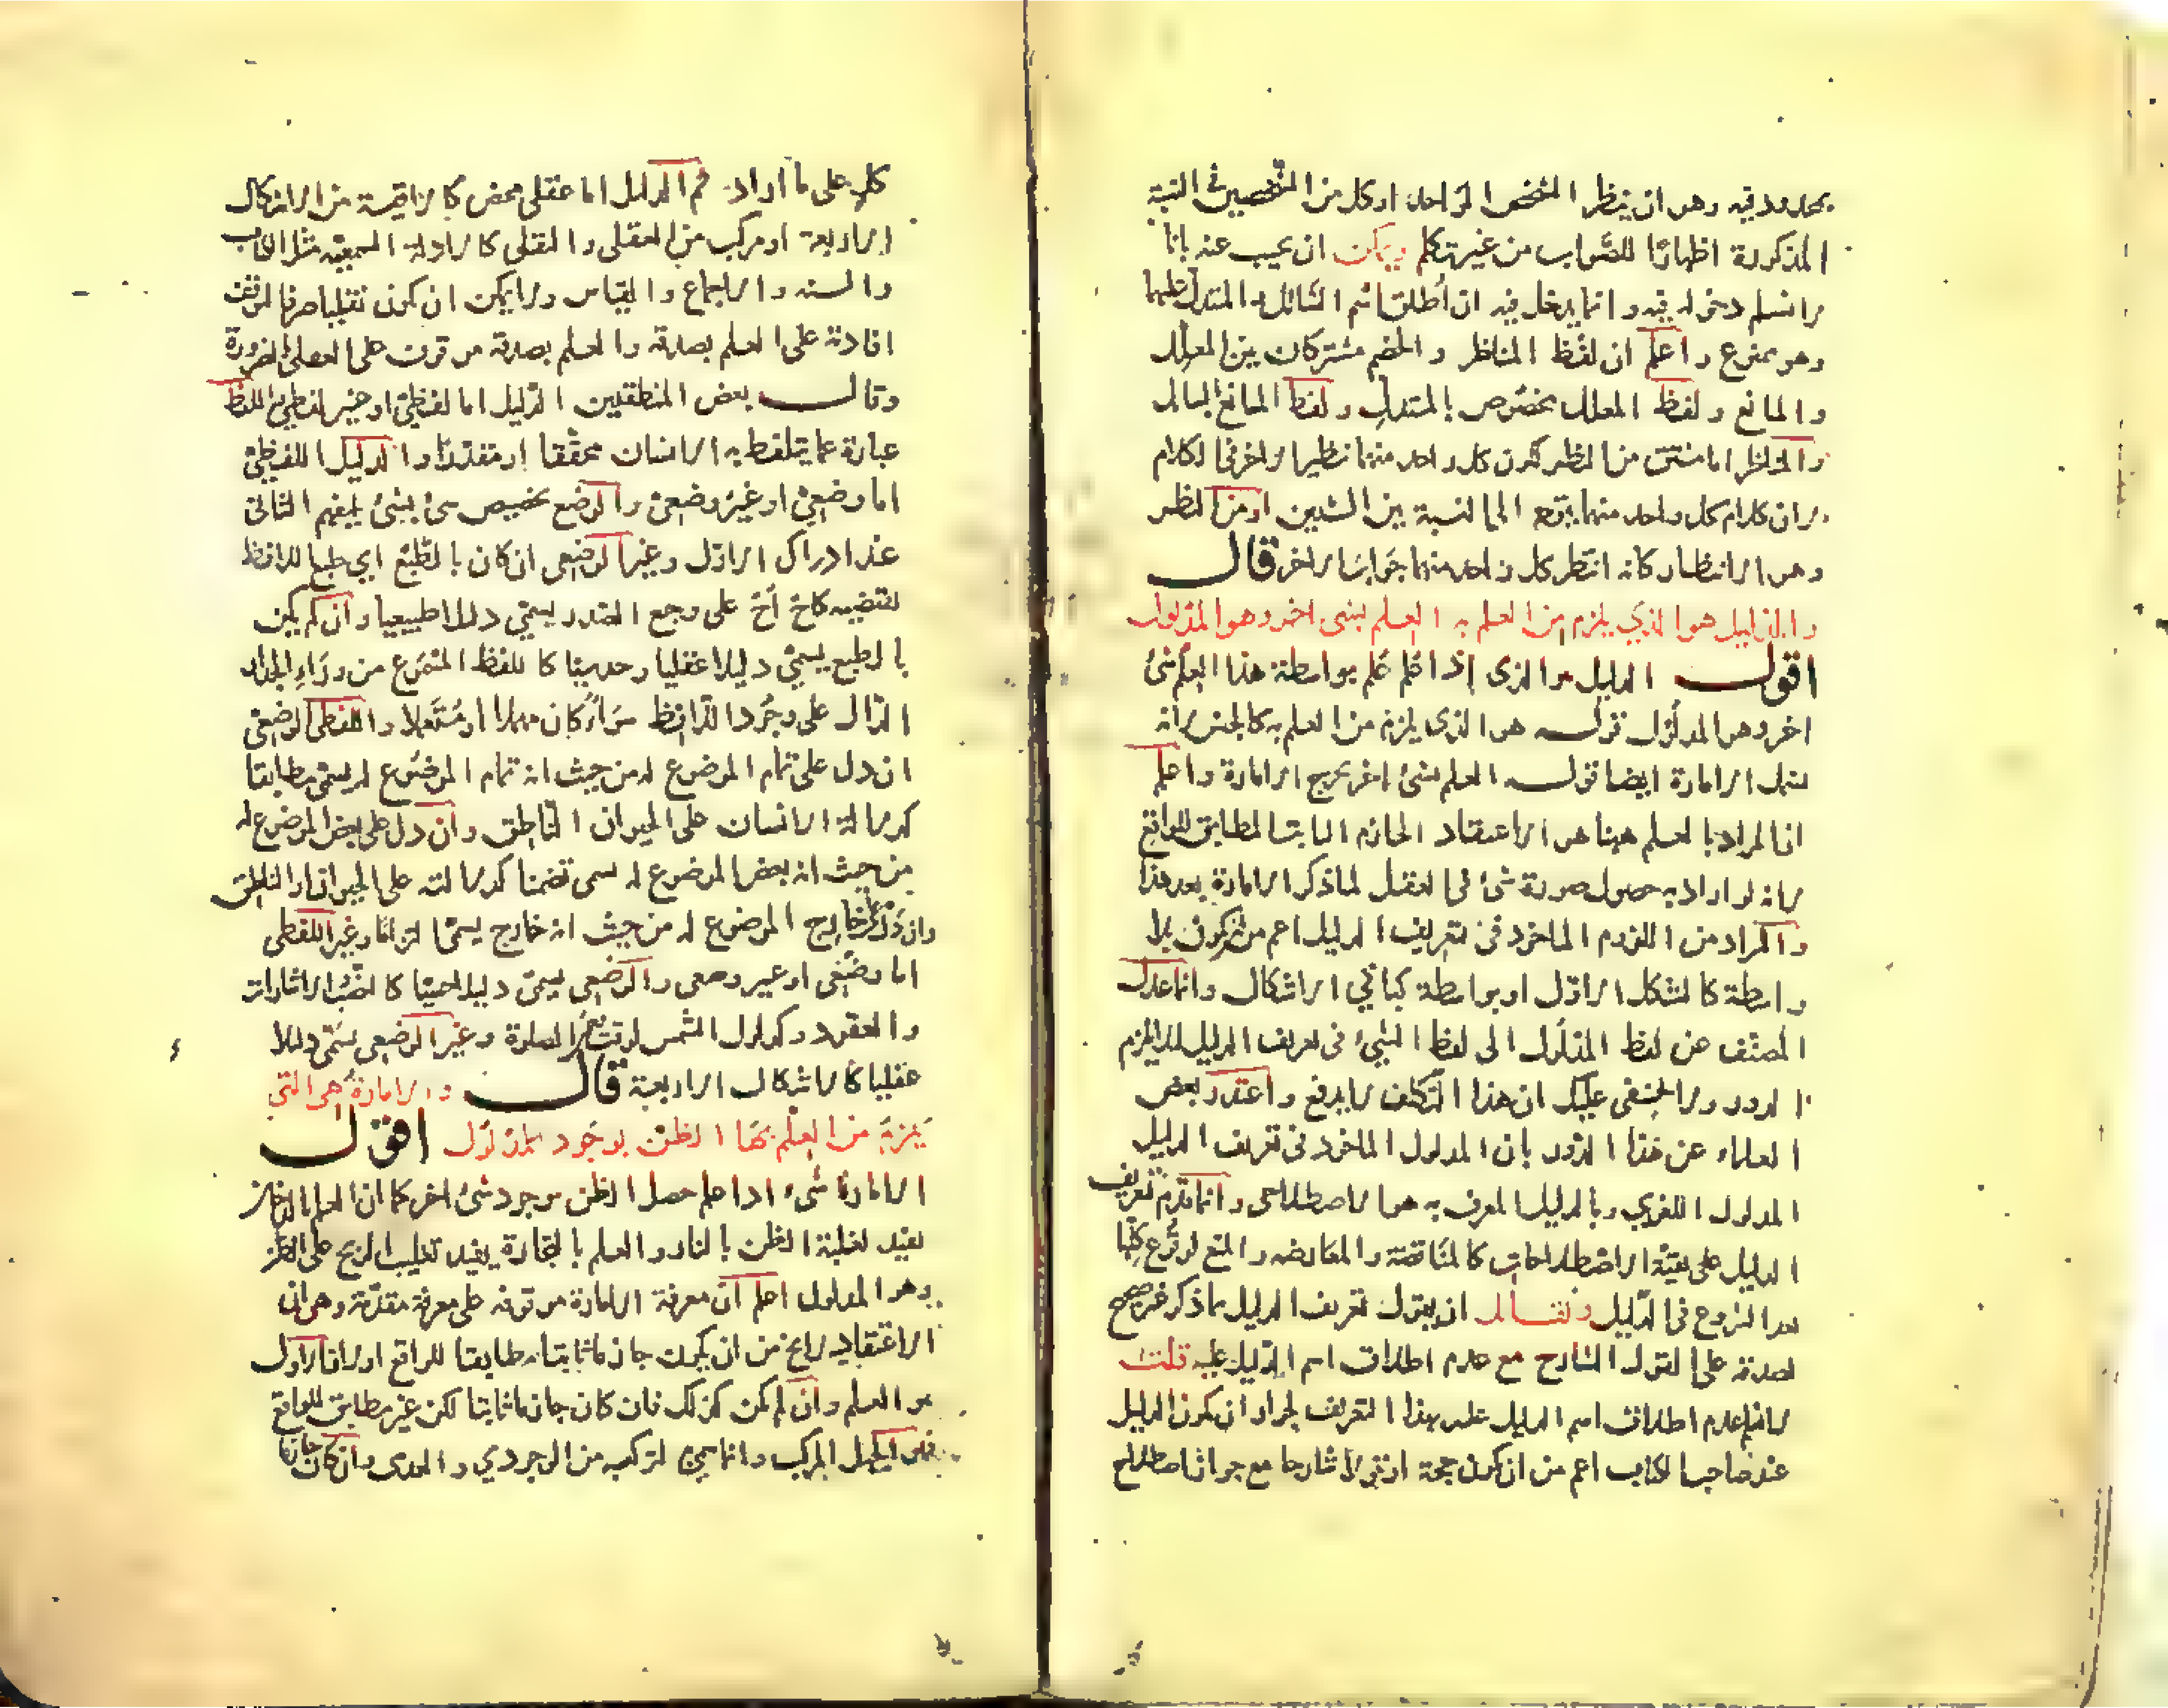 بمحدود فيه وهو ان ينظر الشخص الواحد او كل من الشخصين في النسبة
المذكورة اظهارًا للصواب من غير تكلم ويمكن ان يجيب عنه بانا
لا نسلم دخوله فيه وانما يدخل فيه ان أطلق اسم السائل والمستدل عليهما
وهو ممنوع واعلم ان لفظ المناظر والخصم مشتركان بين المعلل
والمانع ولفظ المعلل مخصوص بالمستدل ولفظ المانع بالسائل
والمناظر اما مشتق من النظير لكون كل واحد منهما نظيرا للاخر في الكلام
لان كلام كل واحد منهما يرجع الى النسبة بين الشيئين او من النظر
وهو الانتظار كانه انتظر كل واحد منهما جواب الاخر قال
والدليل هو الذي يلزم من العلم به العلم بشئ اخر وهو المدلول
اقول الدليل هو الذي إذا علم علم بواسطة هذا العلم شئ
اخر وهو المدلول قوله هو الذي يلزم من العلم به كالجنس لانه
يشمل الامارة ايضا قوله العلم بشئ اخر يخرج الامارة واعلم
ان المراد بالعلم ههنا هو الاعتقاد الجازم الثابت المطابق للواقع
لانه لو اراد به حصول صورة شئ في العقل لما ذكر الامارة بعد هذا
والمراد من اللزوم الماخوذ في تعريف الدليل اعم من ان يكون بلا
واسطة كالشكل الاول او بواسطة كباقي الاشكال وانما عدل
المصنف عن لفظ المدلول الى لفظ الشيئ في تعريف الدليل لئلا يلزم
الدور ولا يخفى عليك ان هذا التكلف لا يدفع واعتذر بعض
العلماء عن هذا الدور بان المدلول الماخوذ في تعريف الدليل
المدلول اللغوي وبالدليل المعرف به هو الاصطلاحي وانما قدم تعريف
الدليل على بقية الاصطلاحات كالمناقضة والمعارضه والمنع لوقوع كلها
بعد الشروع في الدليل ولقائل ان يقول تعريف الدليل بما ذكر غير صحيح
لصدقه على القول الشارح مع عدم اطلاق اسم الدليل عليه قلت
لا نسلم عدم اطلاق اسم الدليل عليه بهذا التعريف لجواز ان يكون الدليل
عند صاحب الكتاب اعم من ان يكون حجة او قولا شارحا مع جواز اصطلاح
كل على ما أراد ثم الدليل اما عقلي محض كالاقيسة من الاشكال
الاربعة او مركب من العقلي والنقلي كالادلة السمعيه مثل الكتاب
والسنه والاجماع والقياس ولا يمكن ان يكون نقليا صرفا لتوقف
افادته على العلم بصدقه والعلم بصدقه موقوف على العقل بالضرورة
وقال بعض المنطقيين الدليل اما لفظي او غير لفظي واللفظ
عبارة عما يتلفظ به الانسان محققا او مقدرًا والدليل اللفظي
اما وضعي او غير وضعي والوضع تخصيص شئ بشئ ليفهم الثاني
عند ادراك الاول وغير الوضعي ان كان بالطبع اي طبع اللافظ
يقتضيه كاخ أخ على وجع الصدر يسمى دليلا طبيعيا وان لم يكن
بالطبع يسمى دليلا عقليا وحدسيا كاللفظ المسموع من وراء الجدار
الدال على وجود اللافظ سواء كان مهملا او مستعملا واللفظي الوضعي
ان دل على تمام الموضوع له من حيث انه تمام الموضوع له يسمى مطابقا
كدلالة الانسان على الحيوان الناطق وان دل على بعض الموضوع له
من حيث انه بعض الموضوع له سمى تضمنا كدلالته على الحيوان او الناطق
وان دل على خارج الموضوع له من حيث انه خارج يسمى التزاما وغير اللفظي
اما وضعي او غير وضعي والوضعي يسمى دليلا حسيا كالنصب والاشارات
والعقود وكدلوك الشمس لوقت الصلوة وغير الوضعي يسمى دليلا
عقليا كالاشكال الاربعة قال والامارة هي التي
يلزم من العلم بها الظن بوجود المدلول اقول
الامارة شيء اذا علم حصل الظن بوجود شئ اخر كما ان العلم بالدخان
يفيد لغلبة الظن بالنار والعلم بالتجارة يفيد تغليب الربح على الظن
وهو المدلول اعلم ان معرفة الامارة موقوفه على معرفة مقدمة وهي ان
الاعتقاد لا يخ من ان يكون جازما ثابتا مطابقا للواقع اولا فالاول
هو العلم وان لم يكن كذلك فان كان جازما ثابتا لكن غير مطابق للواقع
فهو الجهل المركب وانما سمي لتركبه من الوجودي والعدمي وان كان جازما